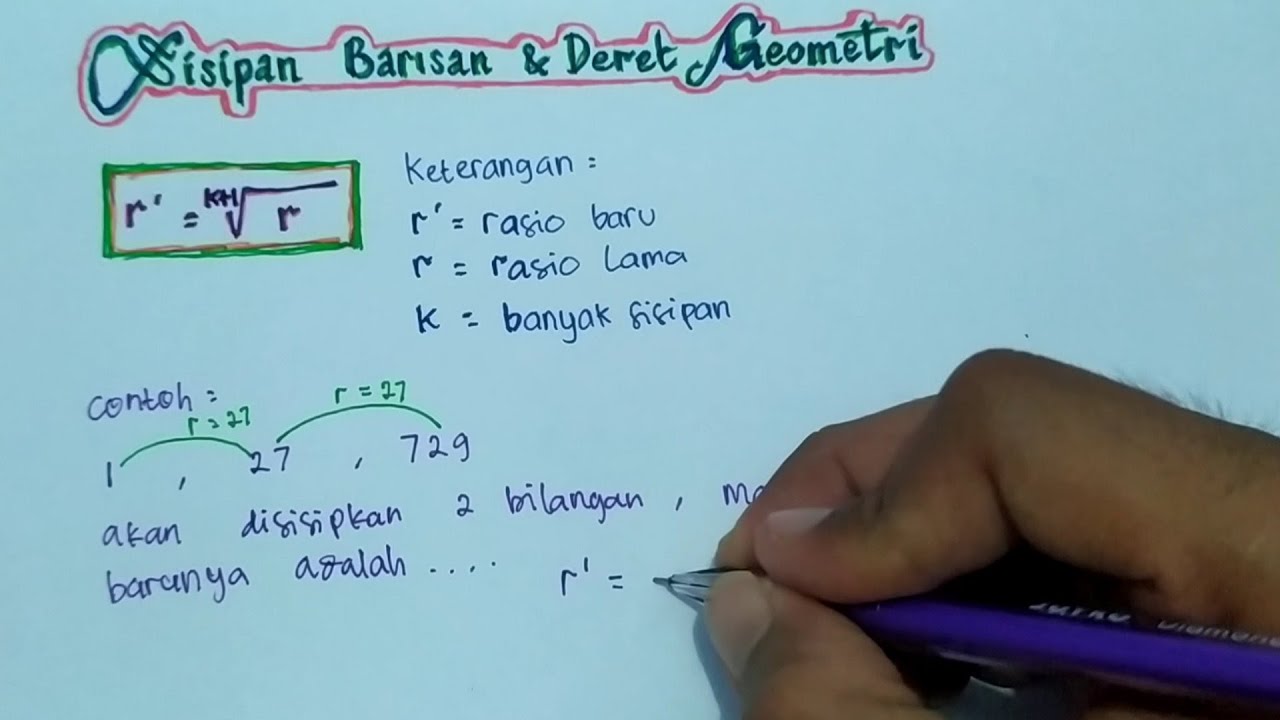 Sisipan Barisan & Deret Geometri
r' = ᵏ⁺¹√r
Keterangan =
r' = rasio baru
r = rasio Lama
K = banyak sisipan
contoh =
r = 27
r = 27
1 , 27 , 729
akan disisipkan 2 bilangan ,
barunya adalah ....
r' =